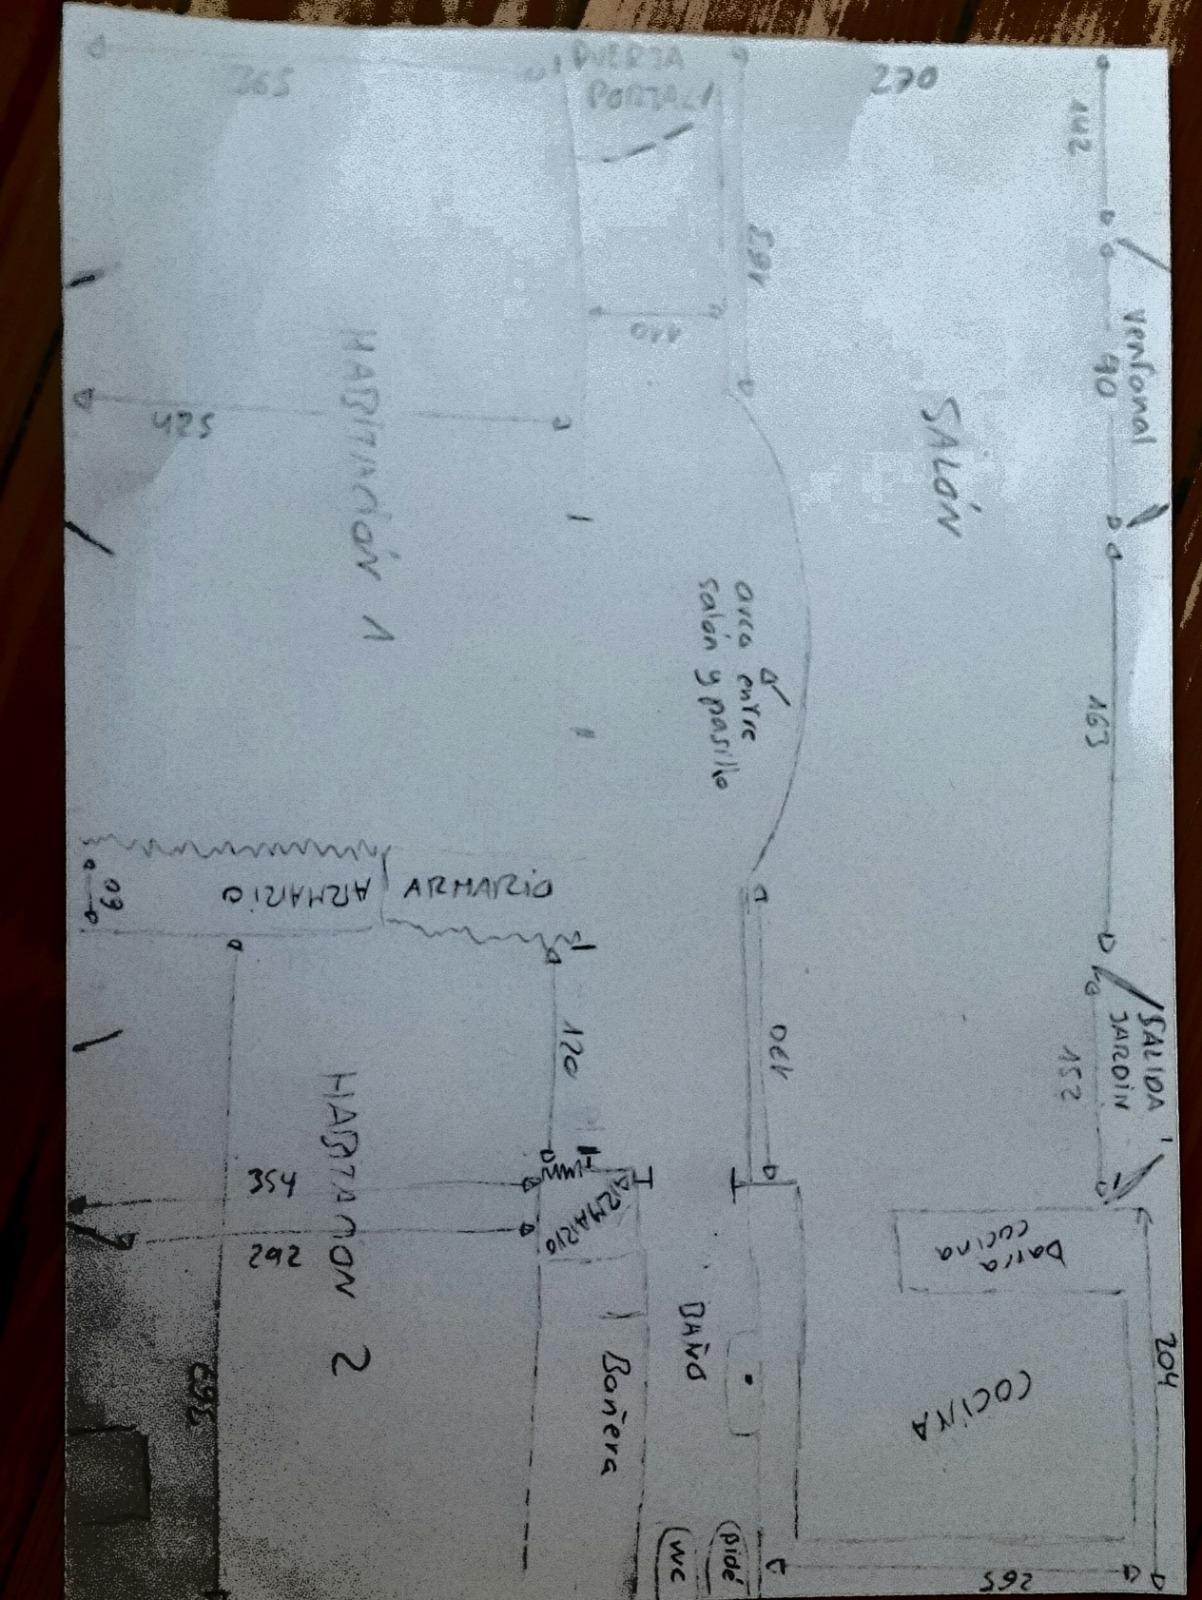 365
PUERTA
PORTAL
270
142
183
110
Ventanal
90
SALÓN
425
HABITACIÓN 1
arco entre
salón y pasillo
163
ARMARIO
ARMARIO
60
120
190
SALIDA
JARDÍN
152
HABITACIÓN 2
354
292
ARMARIO
Barra
cocina
204
BAÑO
Bañera
COCINA
Bidé
WC
265